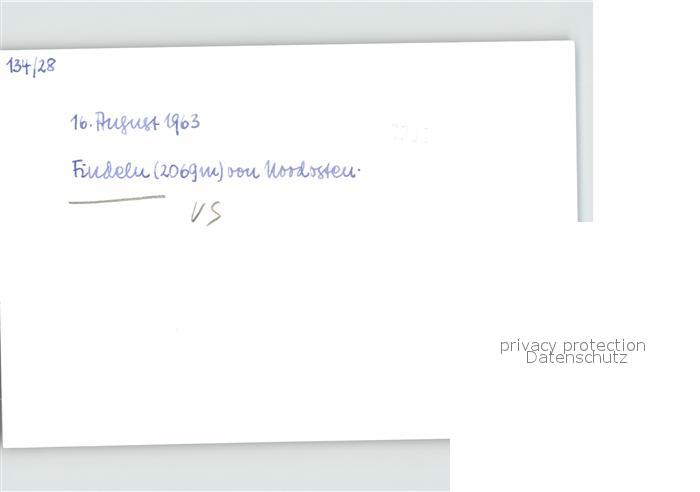 134/28
16. August 1963
Findeln (2069m) von Nordosten.
VS
privacy protection
Datenschutz